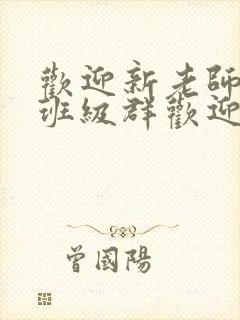 歡迎新老師
班級群歡迎
曾國陽